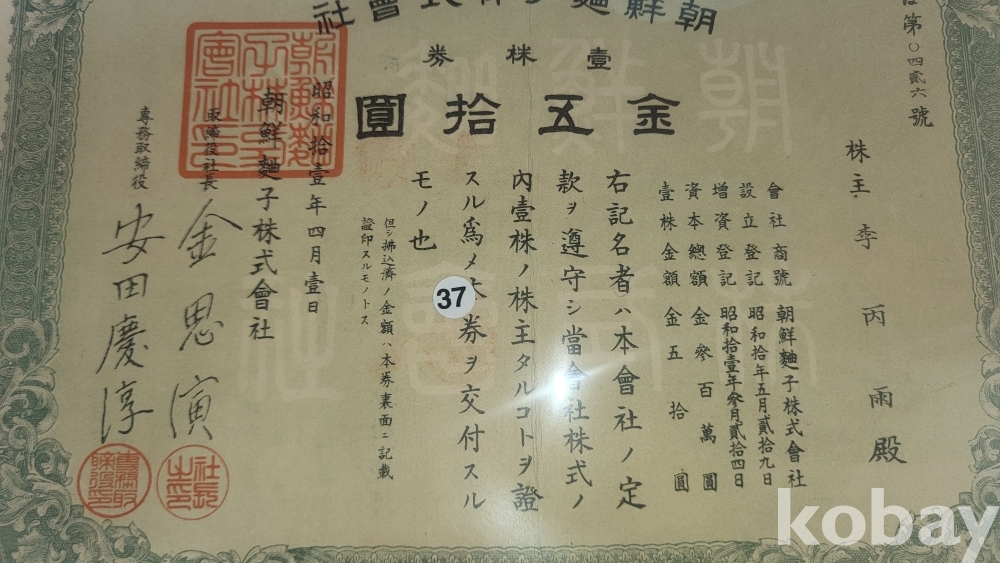 朝鮮麯子株式會社
壹株券
金五拾圓
第〇四貳六號
株主 李丙雨殿
會社商號 朝鮮麯子株式會社
設立登記 昭和拾年五月貳拾九日
增資登記 昭和拾壹年參月貳拾四日
資本總額 金參百萬圓
壹株金額 金五拾圓
右記名者ハ本會社ノ定
款ヲ遵守シ當會社株式ノ
內壹株ノ株主タルコトヲ證
スル爲メ本券ヲ交付スル
モノ也
但シ拂込濟ノ金額ハ本券裏面ニ記載
證印スルモノトス
昭和拾壹年四月壹日
朝鮮麯子株式會社
取締役社長 金思演
專務取締役 安田慶淳
朝鮮麯子株式會社印
社長之印
專務取締役印
37
朝鮮
會社
kobay